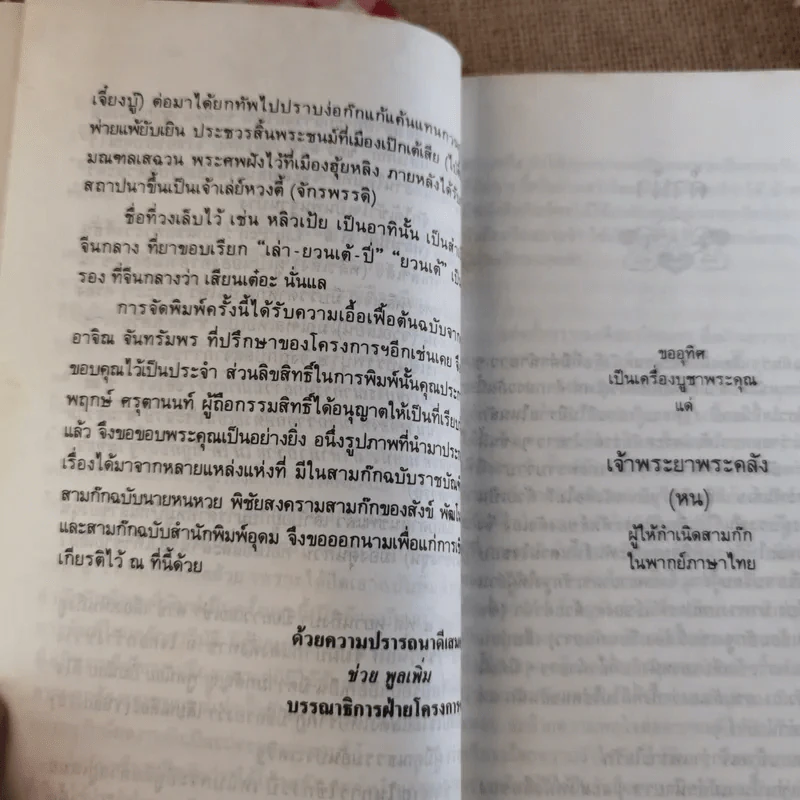 เจี๋ยงบู๊) ต่อมาได้ยกทัพไปปราบง่อก๊กแก้แค้นแทนกวน
พ่ายแพ้ยับเยิน ประชวรสิ้นพระชนม์ที่เมืองเป๊กเต้เสีย
มณฑลเสฉวน พระศพฝังไว้ที่เมืองฮุ้ยหลิง ภายหลังได้รับ
สถาปนาขึ้นเป็นเจ้าเล่ย์หวงตี้ (จักรพรรดิ)
ชื่อที่วงเล็บไว้ เช่น หลิวเป้ย เป็นอาทินั้น เป็นสำ
จีนกลาง ที่ยาขอบเรียก “เล่า-ยวนเต้-ปี่” “ยวนเต้” เป็
รอง ที่จีนกลางว่า เสียนเต๋อะ นั่นแล
การจัดพิมพ์ครั้งนี้ได้รับความเอื้อเฟื้อต้นฉบับจาก
อาจิณ จันทรัมพร ที่ปรึกษาของโครงการฯอีกเช่นเคย จึ
ขอบคุณไว้เป็นประจำ ส่วนลิขสิทธิ์ในการพิมพ์นั้นคุณประก
พฤกษ์ ศรุตานนท์ ผู้ถือกรรมสิทธิ์ได้อนุญาตให้เป็นที่เรียบ
แล้ว จึงขอขอบพระคุณเป็นอย่างยิ่ง อนึ่งรูปภาพที่นำมาประก
เรื่องได้มาจากหลายแหล่งแห่งที่ มีในสามก๊กฉบับราชบัณฑิ
สามก๊กฉบับนายหนหวย พิชัยสงครามสามก๊กของสังข์ พัฒโน
และสามก๊กฉบับสำนักพิมพ์อุดม จึงขอออกนามเพื่อแก่การ
เกียรติไว้ ณ ที่นี้ด้วย
ด้วยความปรารถนาดีเสม
ช่วย พูลเพิ่ม
บรรณาธิการฝ่ายโครงการ
ขออุทิศ
เป็นเครื่องบูชาพระคุณ
แด่
เจ้าพระยาพระคลัง
(หน)
ผู้ให้กำเนิดสามก๊ก
ในพากย์ภาษาไทย